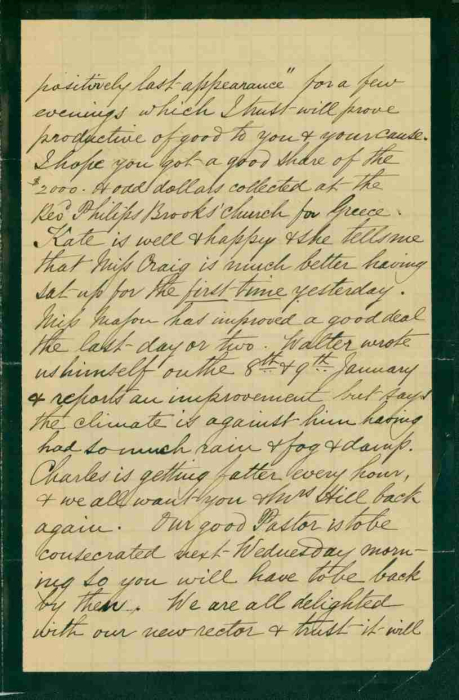 positively last appearance" for a few
evenings which I trust will prove
productive of good to you & your cause.
I hope you got a good share of the
$2000. & odd dollars collected at the
Revd Philips Brooks' church for Greece.
Kate is well & happy & she tells me
that Miss Craig is much better having
sat up for the first time yesterday.
Miss Mason has improved a good deal
the last day or two. Walter wrote
us himself on the 8th & 9th January
& reports an improvement but says
the climate is against him having
had so much rain & fog & damp.
Charles is getting fatter every hour,
& we all want you & Mrs Hill back
again. Our good Pastor is to be
consecrated next Wednesday morn-
ing so you will have to be back
by then. We are all delighted
with our new rector & trust it will